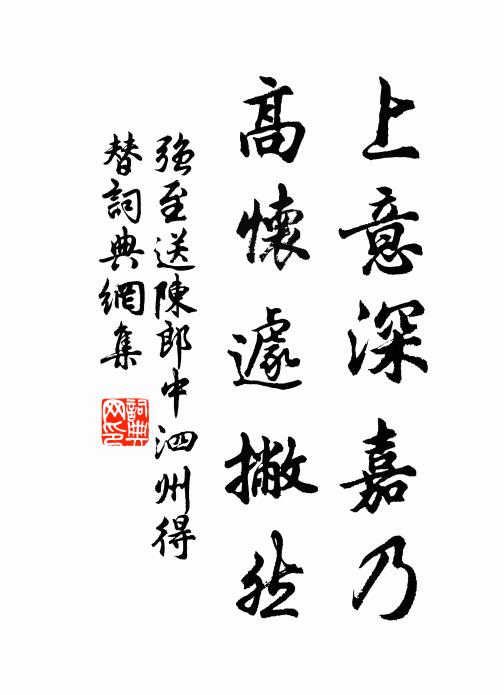 上意深嘉乃
高懷遽撇然
強至送陳郎中泗州得
替詞典網集
詞典
网印